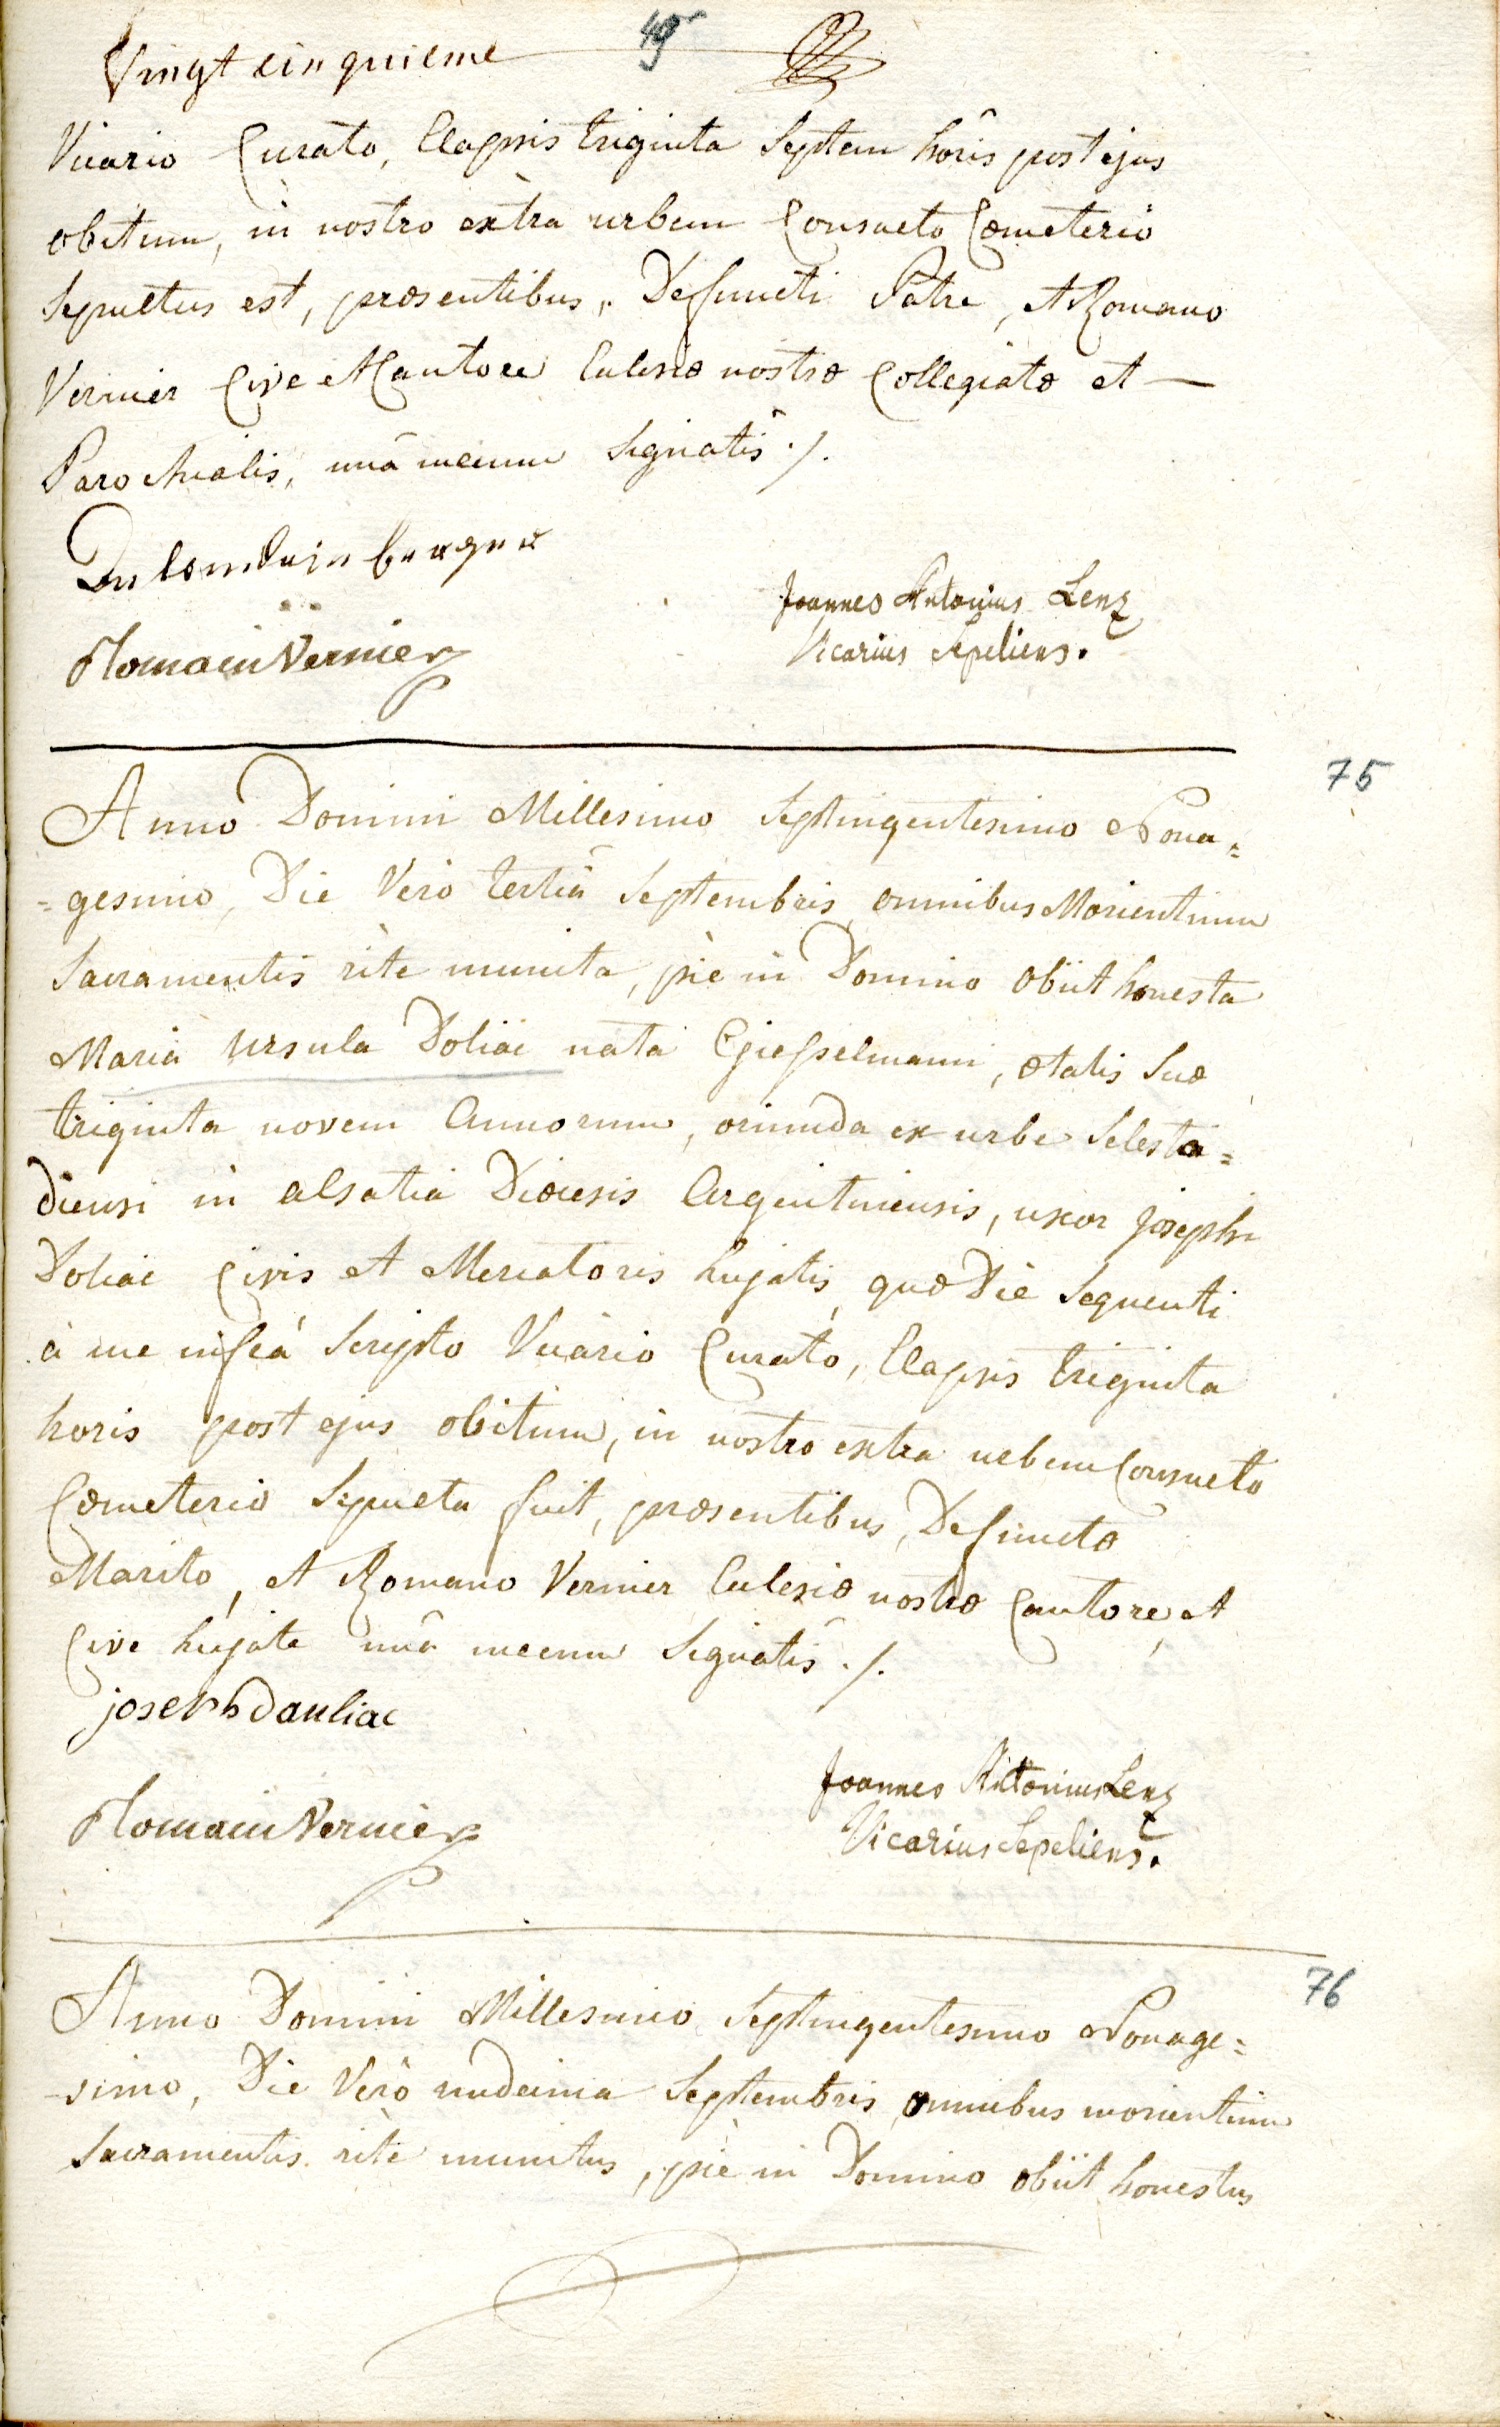 Vingt cinquieme 49
Vicario Curato, Elapsis triginta Septem horis post ejus
obitum, in nostro extra urbem Consueto Cœmeterio
Sepultus est, præsentibus, Defuncti Patre, et Romano
Vernier Cive et Cantore Ecclesiæ nostræ Collegiatæ et —
Parochialis, unâ mecum Signatis ./.
Joannes Antonius Lenz
Romain Vernier
Vicarius Sepeliens.
75
Anno Domini Millesimo Septingentesimo Nona=
=gesimo, Die Vero tertiâ Septembris, omnibus Morientium
Sacramentis ritè munita, piè in Domino obiit honesta
Maria Ursula Doliac nata Giesselmann, ætatis Suæ
triginta novem Annorum, oriunda ex urbe Selesta=
diensi in alsatia Diœcesis Argentinensis, uxor josephi
Doliac Civis et Mercatoris hujatis, quæ Die Sequenti
à me infrà Scripto Vicario Curato, Elapsis triginta
horis post ejus obitum, in nostro extra urbem Consueto
Cœmeterio Sepulta fuit, præsentibus, Defunctæ
Marito, et Romano Vernier Ecclesiæ nostræ Cantore, et
Cive hujate unâ mecum Signatis ./.
joseph dauliac
Joannes Antonius Lenz
Romain Vernier
Vicarius Sepeliens.
76
Anno Domini Millesimo Septingentesimo Nonage=
-simo, Die Verò undecima Septembris, omnibus morientium
Sacramentis ritè munitus, piè in Domino obiit honestus